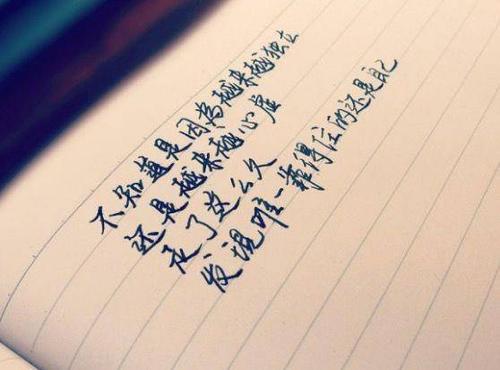 不知道是因為越来越独立
还是越来越心虚
走了这么久
发现唯一靠得住的还是自己